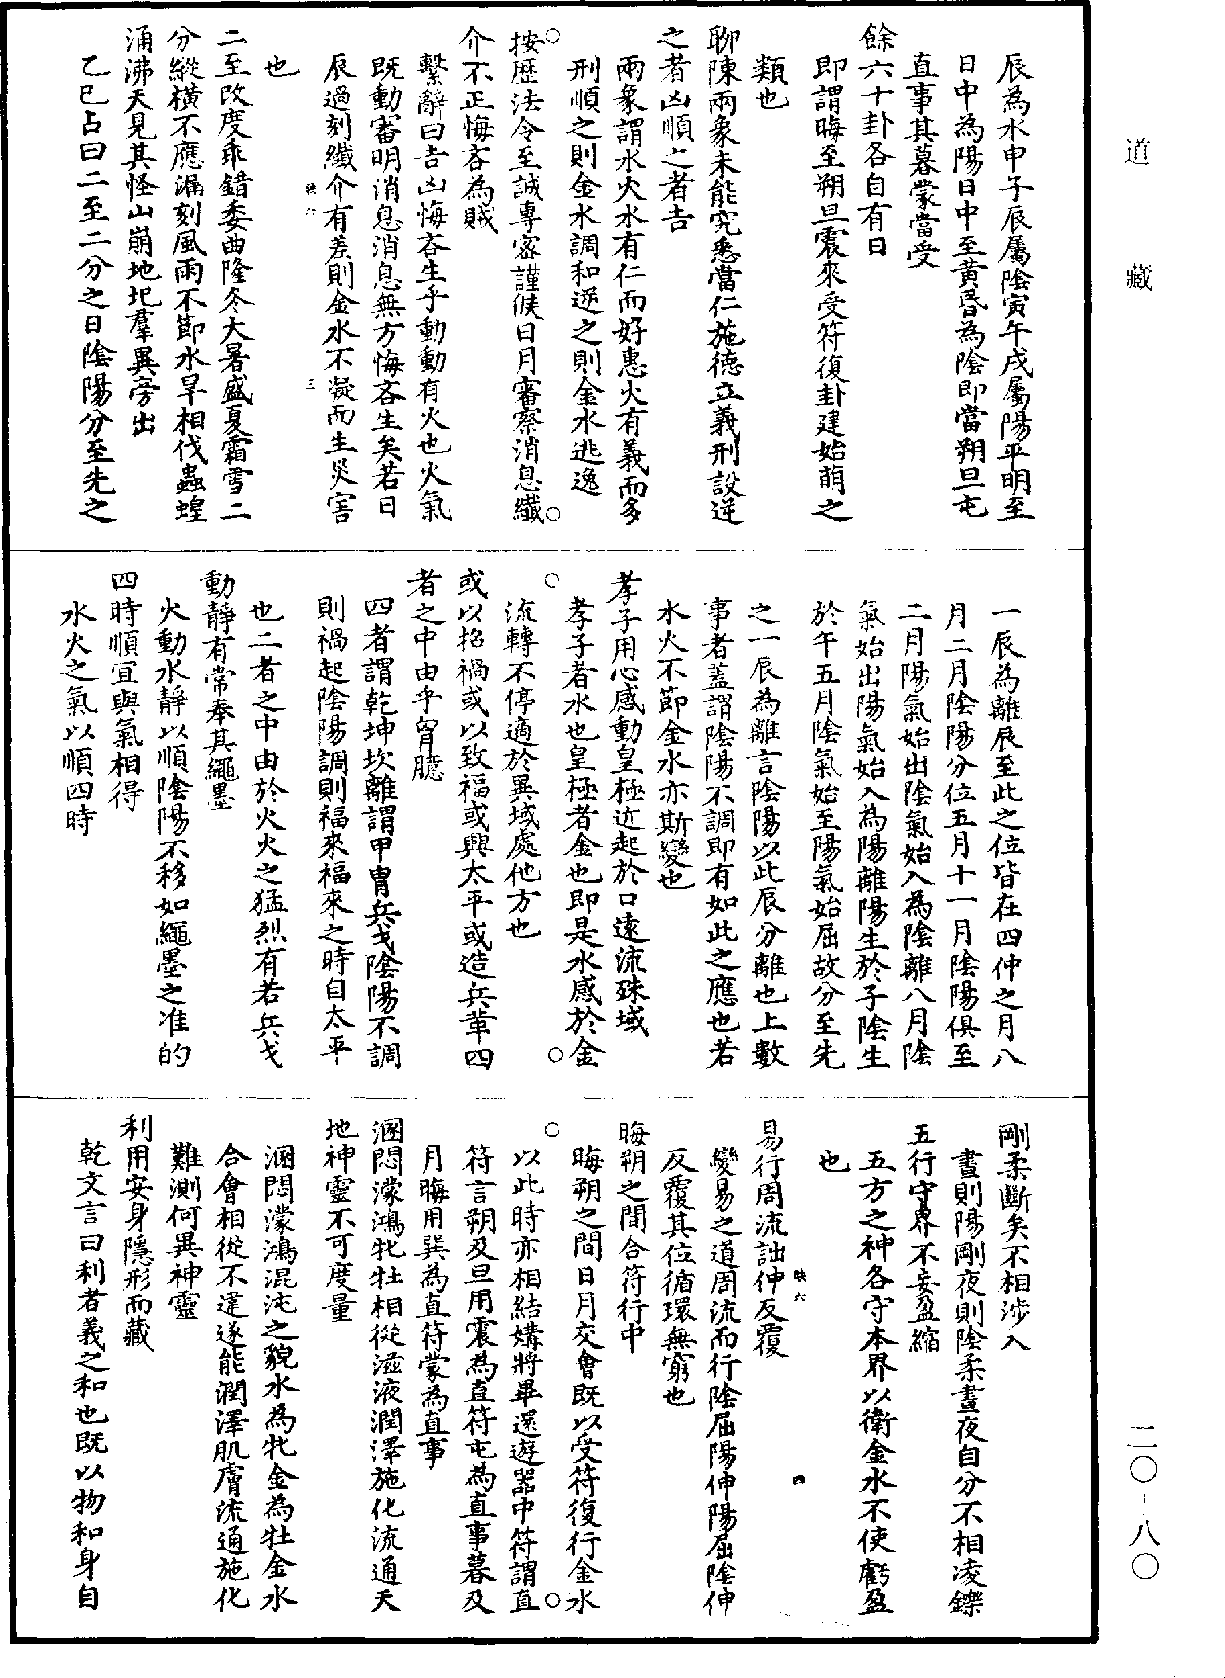 道藏
二〇-八〇
辰為水申子辰屬陰寅午戌屬陽平明至
日中為陽日中至黃昏為陰即當朔旦屯
直事其暮蒙當受
餘六十卦各自有日
即謂晦至朔旦震來受符復卦建始萌之
類也
聊陳兩象未能究悉當仁施德立義刑設逆
之者凶順之者吉
兩象謂水火水有仁而好惠火有義而多
刑順之則金水調和逆之則金水逃逸
按歷法令至誠專密謹候日月審察消息纖
介不正悔吝為賊
繫辭曰吉凶悔吝生乎動動有火也火氣
既動審明消息消息無方悔吝生矣若日
辰過刻纖介有差則金水不凝而生災害
也
映六
三
二至改度乖錯委曲隆冬大暑盛夏霜雪二
分縱橫不應漏刻風雨不節水旱相伐蟲蝗
涌沸天見其怪山崩地圮羣異旁出
乙巳占曰二至二分之日陰陽分至先之
一辰為離辰至此之位皆在四仲之月八
月二月陰陽分位五月十一月陰陽俱至
二月陽氣始出陰氣始入為陰離八月陰
氣始出陽氣始入為陽離陽生於子陰生
於午五月陰氣始至陽氣始屈故分至先
之一辰為離言陰陽以此辰分離也上數
事者蓋謂陰陽不調即有如此之應也若
水火不節金水亦斯變也
孝子用心感動皇極近起於口遠流殊域
孝子者水也皇極者金也即是水感於金
流轉不停適於異域處他方也
或以招禍或以致福或興太平或造兵革四
者之中由乎胷臆
四者謂乾坤坎離謂甲胄兵戈陰陽不調
則禍起陰陽調則福來福來之時自太平
也二者之中由於火火之猛烈有若兵戈
動靜有常奉其繩墨
火動水靜以順陰陽不移如繩墨之准的
四時順宜與氣相得
水火之氣以順四時
剛柔斷矣不相涉入
晝則陽剛夜則陰柔晝夜自分不相凌鑠
五行守界不妄盈縮
五方之神各守本界以衛金水不使虧盈
也
易行周流詘伸反覆
映六
四
變易之道周流而行陰屈陽伸陽屈陰伸
反覆其位循環無窮也
晦朔之間合符行中
晦朔之間日月交會既以受符復行金水
以此時亦相結媾將畢還遊器中符謂直
符言朔及旦用震為直符屯為直事暮及
月晦用巽為直符蒙為直事
溷悶濛鴻牝牡相從滋液潤澤施化流通天
地神靈不可度量
溷悶濛鴻混沌之貌水為牝金為牡金水
合會相從不違遂能潤澤肌膚流通施化
難測何異神靈
利用安身隱形而藏
乾文言曰利者義之和也既以物和身自